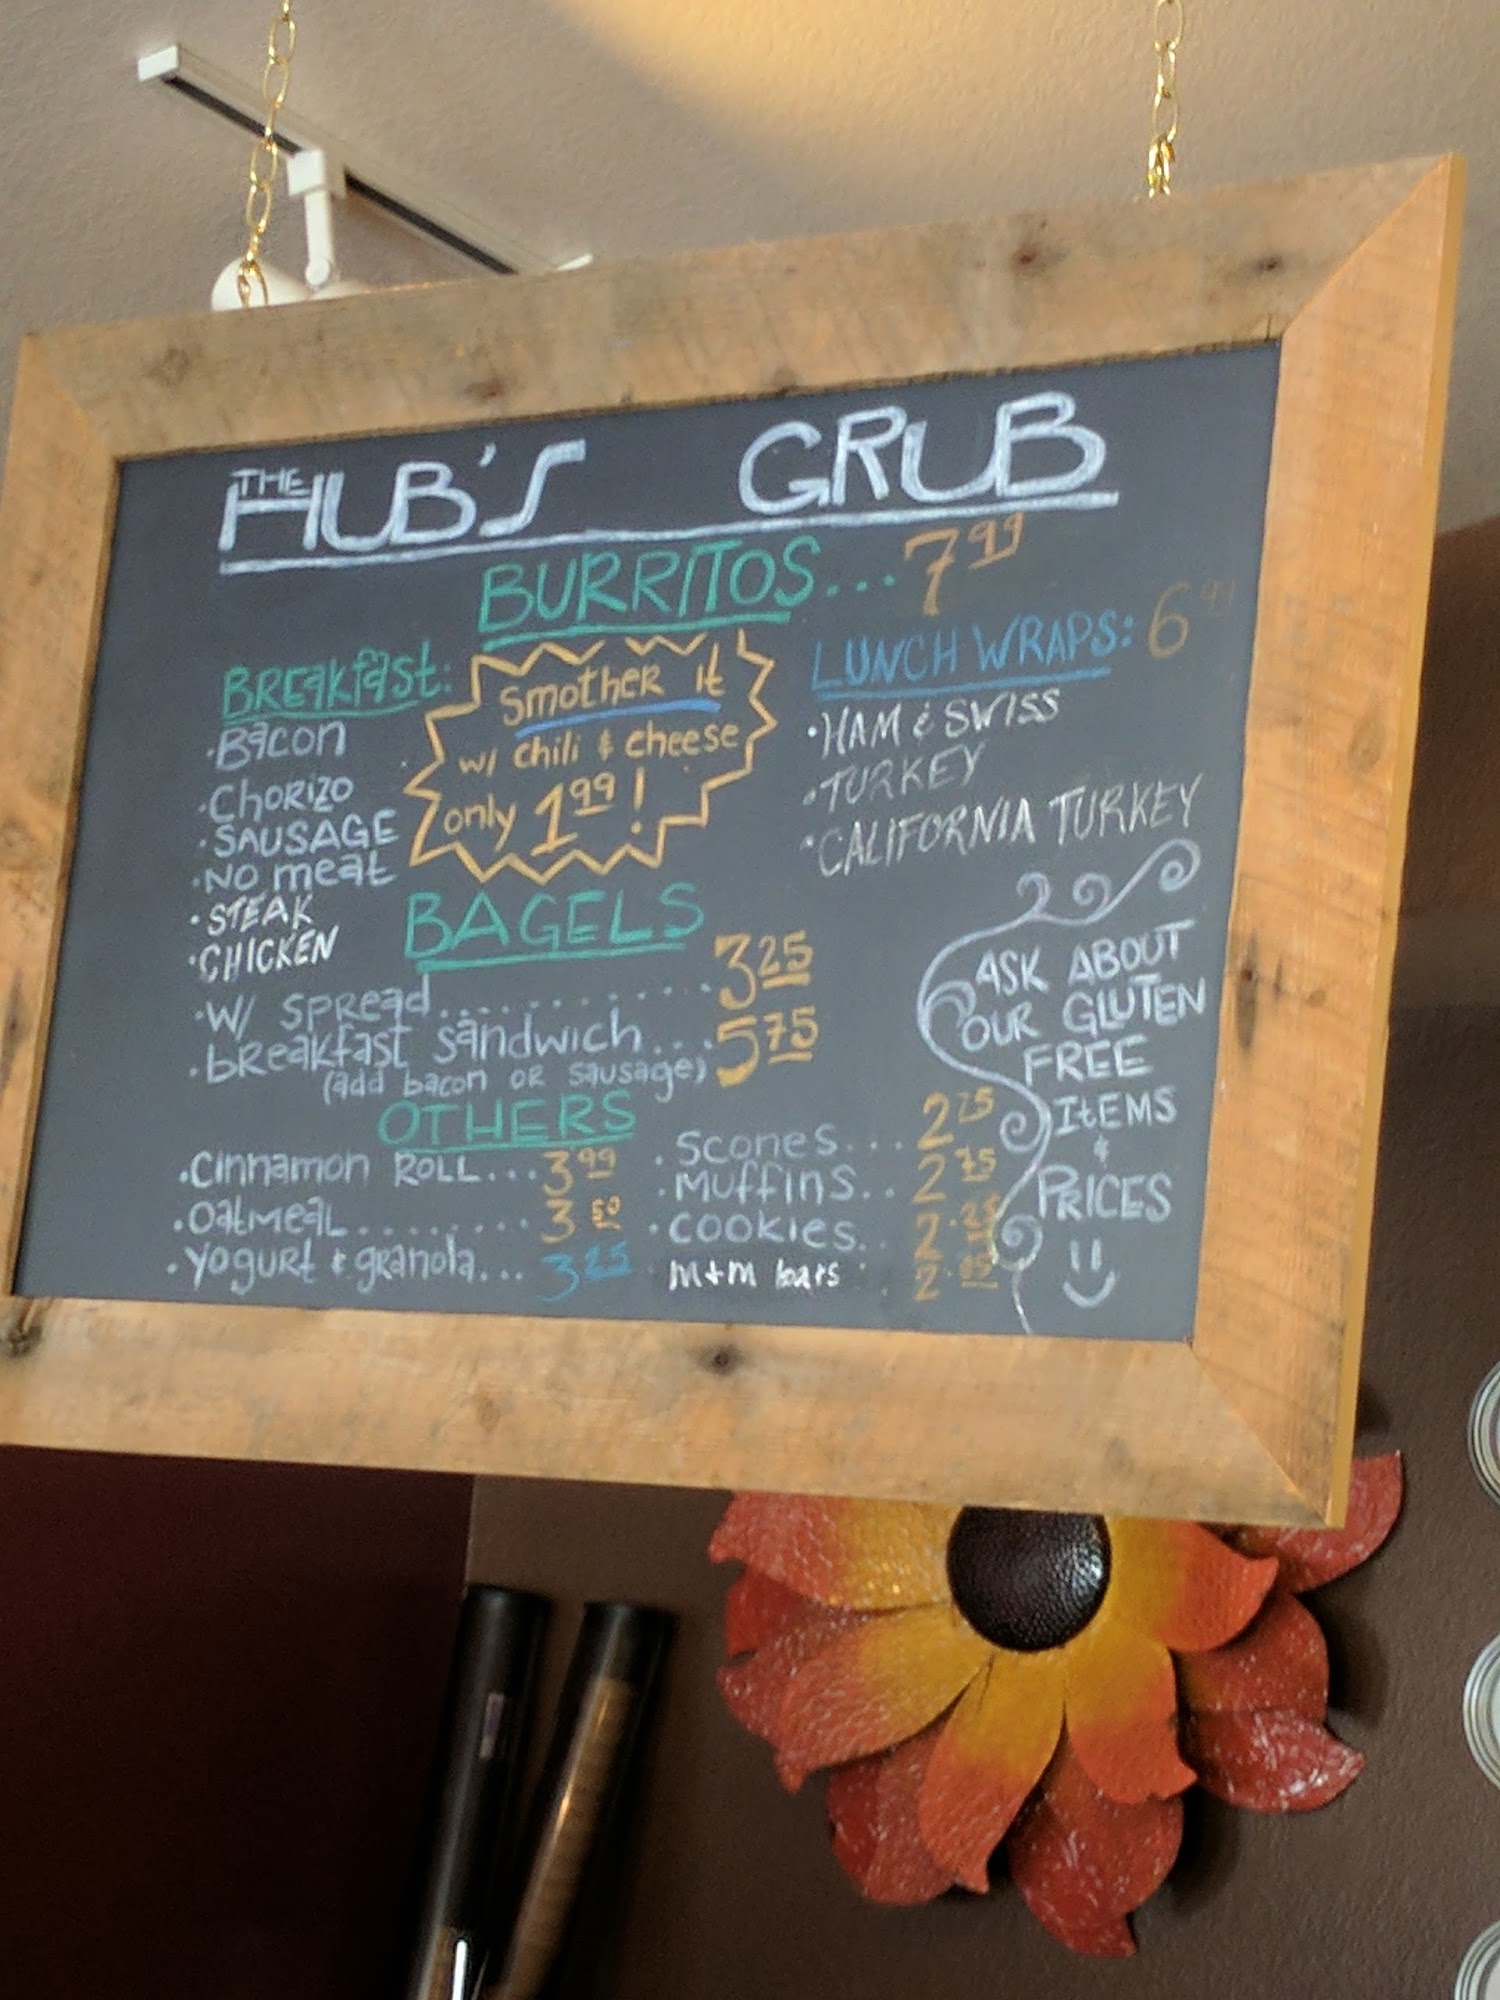 THE HUB'S GRUB
BURRITOS...7.99
BREAKFast:
·Bacon
·Chorizo
·SAUSAGE
·No meat
·STEAK
·CHICKEN
Smother it
w/ chili & cheese
only 1.99!
LUNCH WRAPS: 6
·HAM & SWISS
·TURKEY
·CALIFORNIA TURKEY
BAGELS
·W/ SPREad.......... 3.25
·breakfast sandwich... 5.75
(add bacon or sausage)
OTHERS
·Cinnamon ROLL... 3.99
·OatMeaL........ 3.50
·yogurt & granola... 3.25
·Scones... 2.25
·Muffins.. 2.75
·cookies..
m+m bars
ASK ABOUT
OUR GLUTEN
FREE
ItEMS
&
PRICES